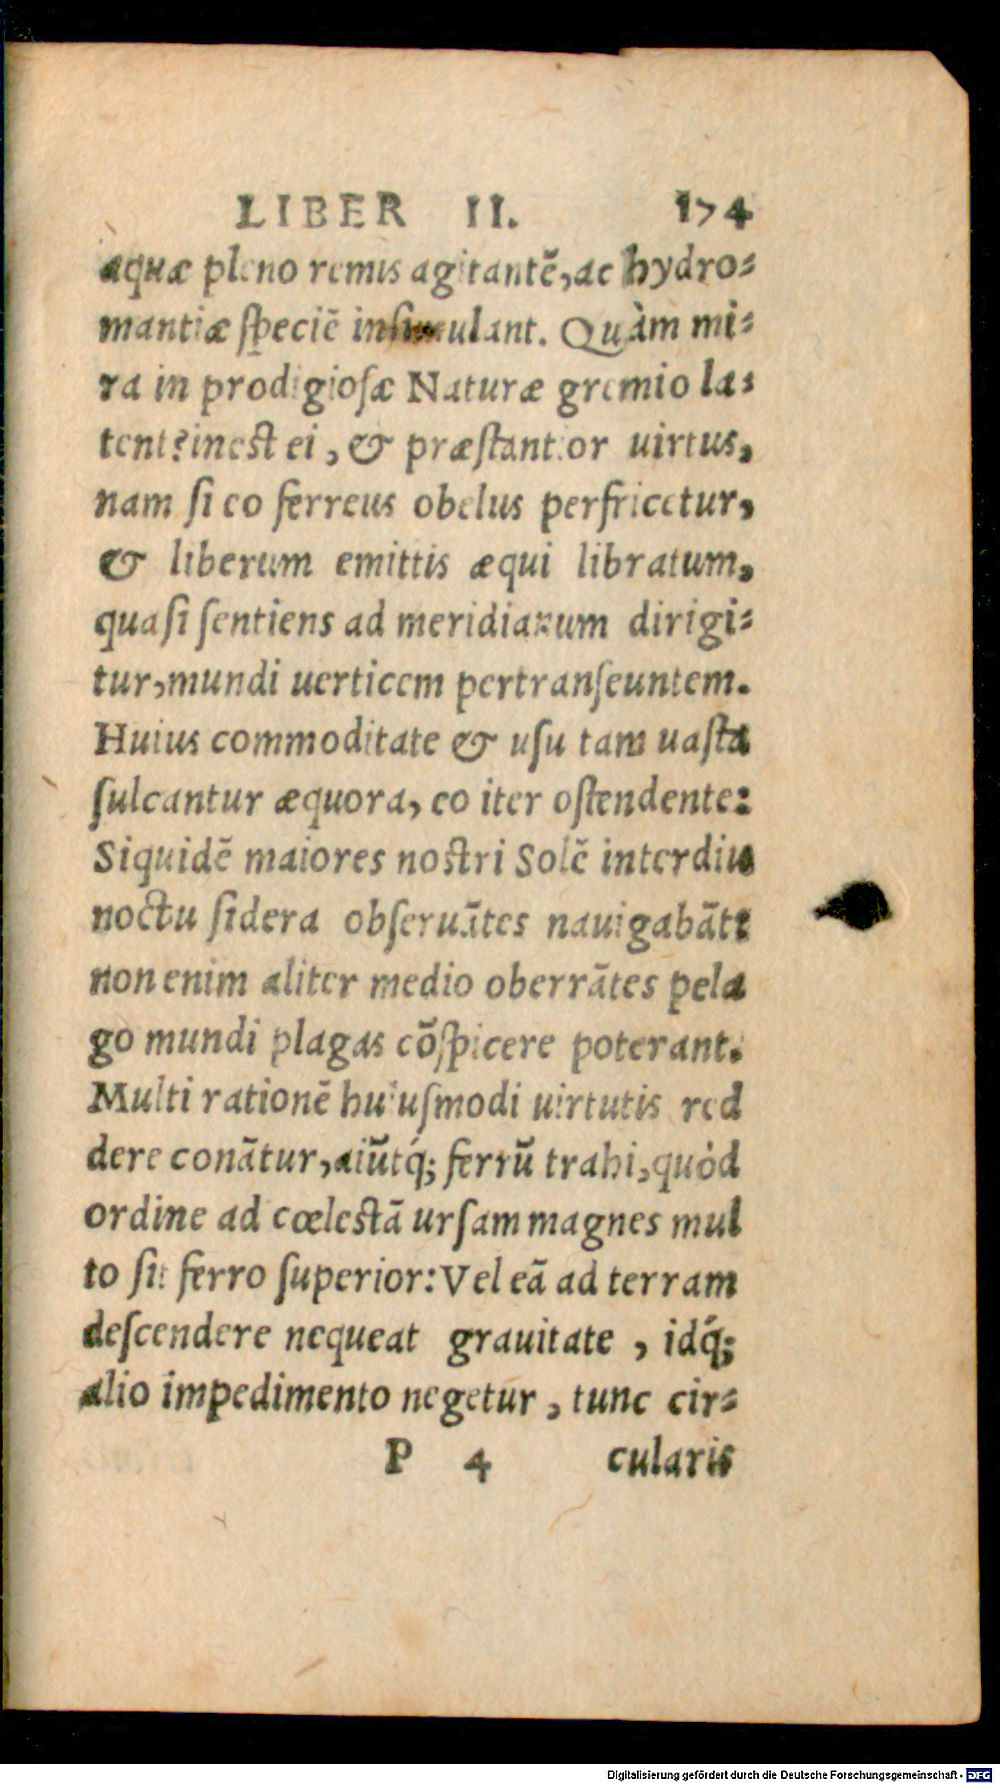 LIBER II. 174
aquæ pleno remis agitantē, ac hydro-
mantiæ ſpeciē inſimulant. Quàm mi-
ra in prodigioſæ Naturæ gremio la-
tent? ineſt ei, & præſtantior uirtus,
nam ſi eo ferreus obelus perfricetur,
& liberum emittis æqui libratum,
quaſi ſentiens ad meridianum dirigi-
tur, mundi uerticem pertranſeuntem.
Huius commoditate & uſu tam uaſta
ſulcantur æquora, eo iter oſtendente:
Siquidē maiores noſtri Solē interdiu
noctu ſidera obſeruātes nauigabāt:
non enim aliter medio oberrātes pela
go mundi plagas cōſpicere poterant.
Multi rationē huiuſmodi uirtutis red
dere conātur, aiūtq́; ferrū trahi, quòd
ordine ad cœleſtā urſam magnes mul
to ſit ferro ſuperior: Vel eā ad terram
deſcendere nequeat grauitate, idq́;
alio impedimento negetur, tunc cir-
P 4 cularis
Digitalisierung gefördert durch die Deutsche Forschungsgemeinschaft - DFG